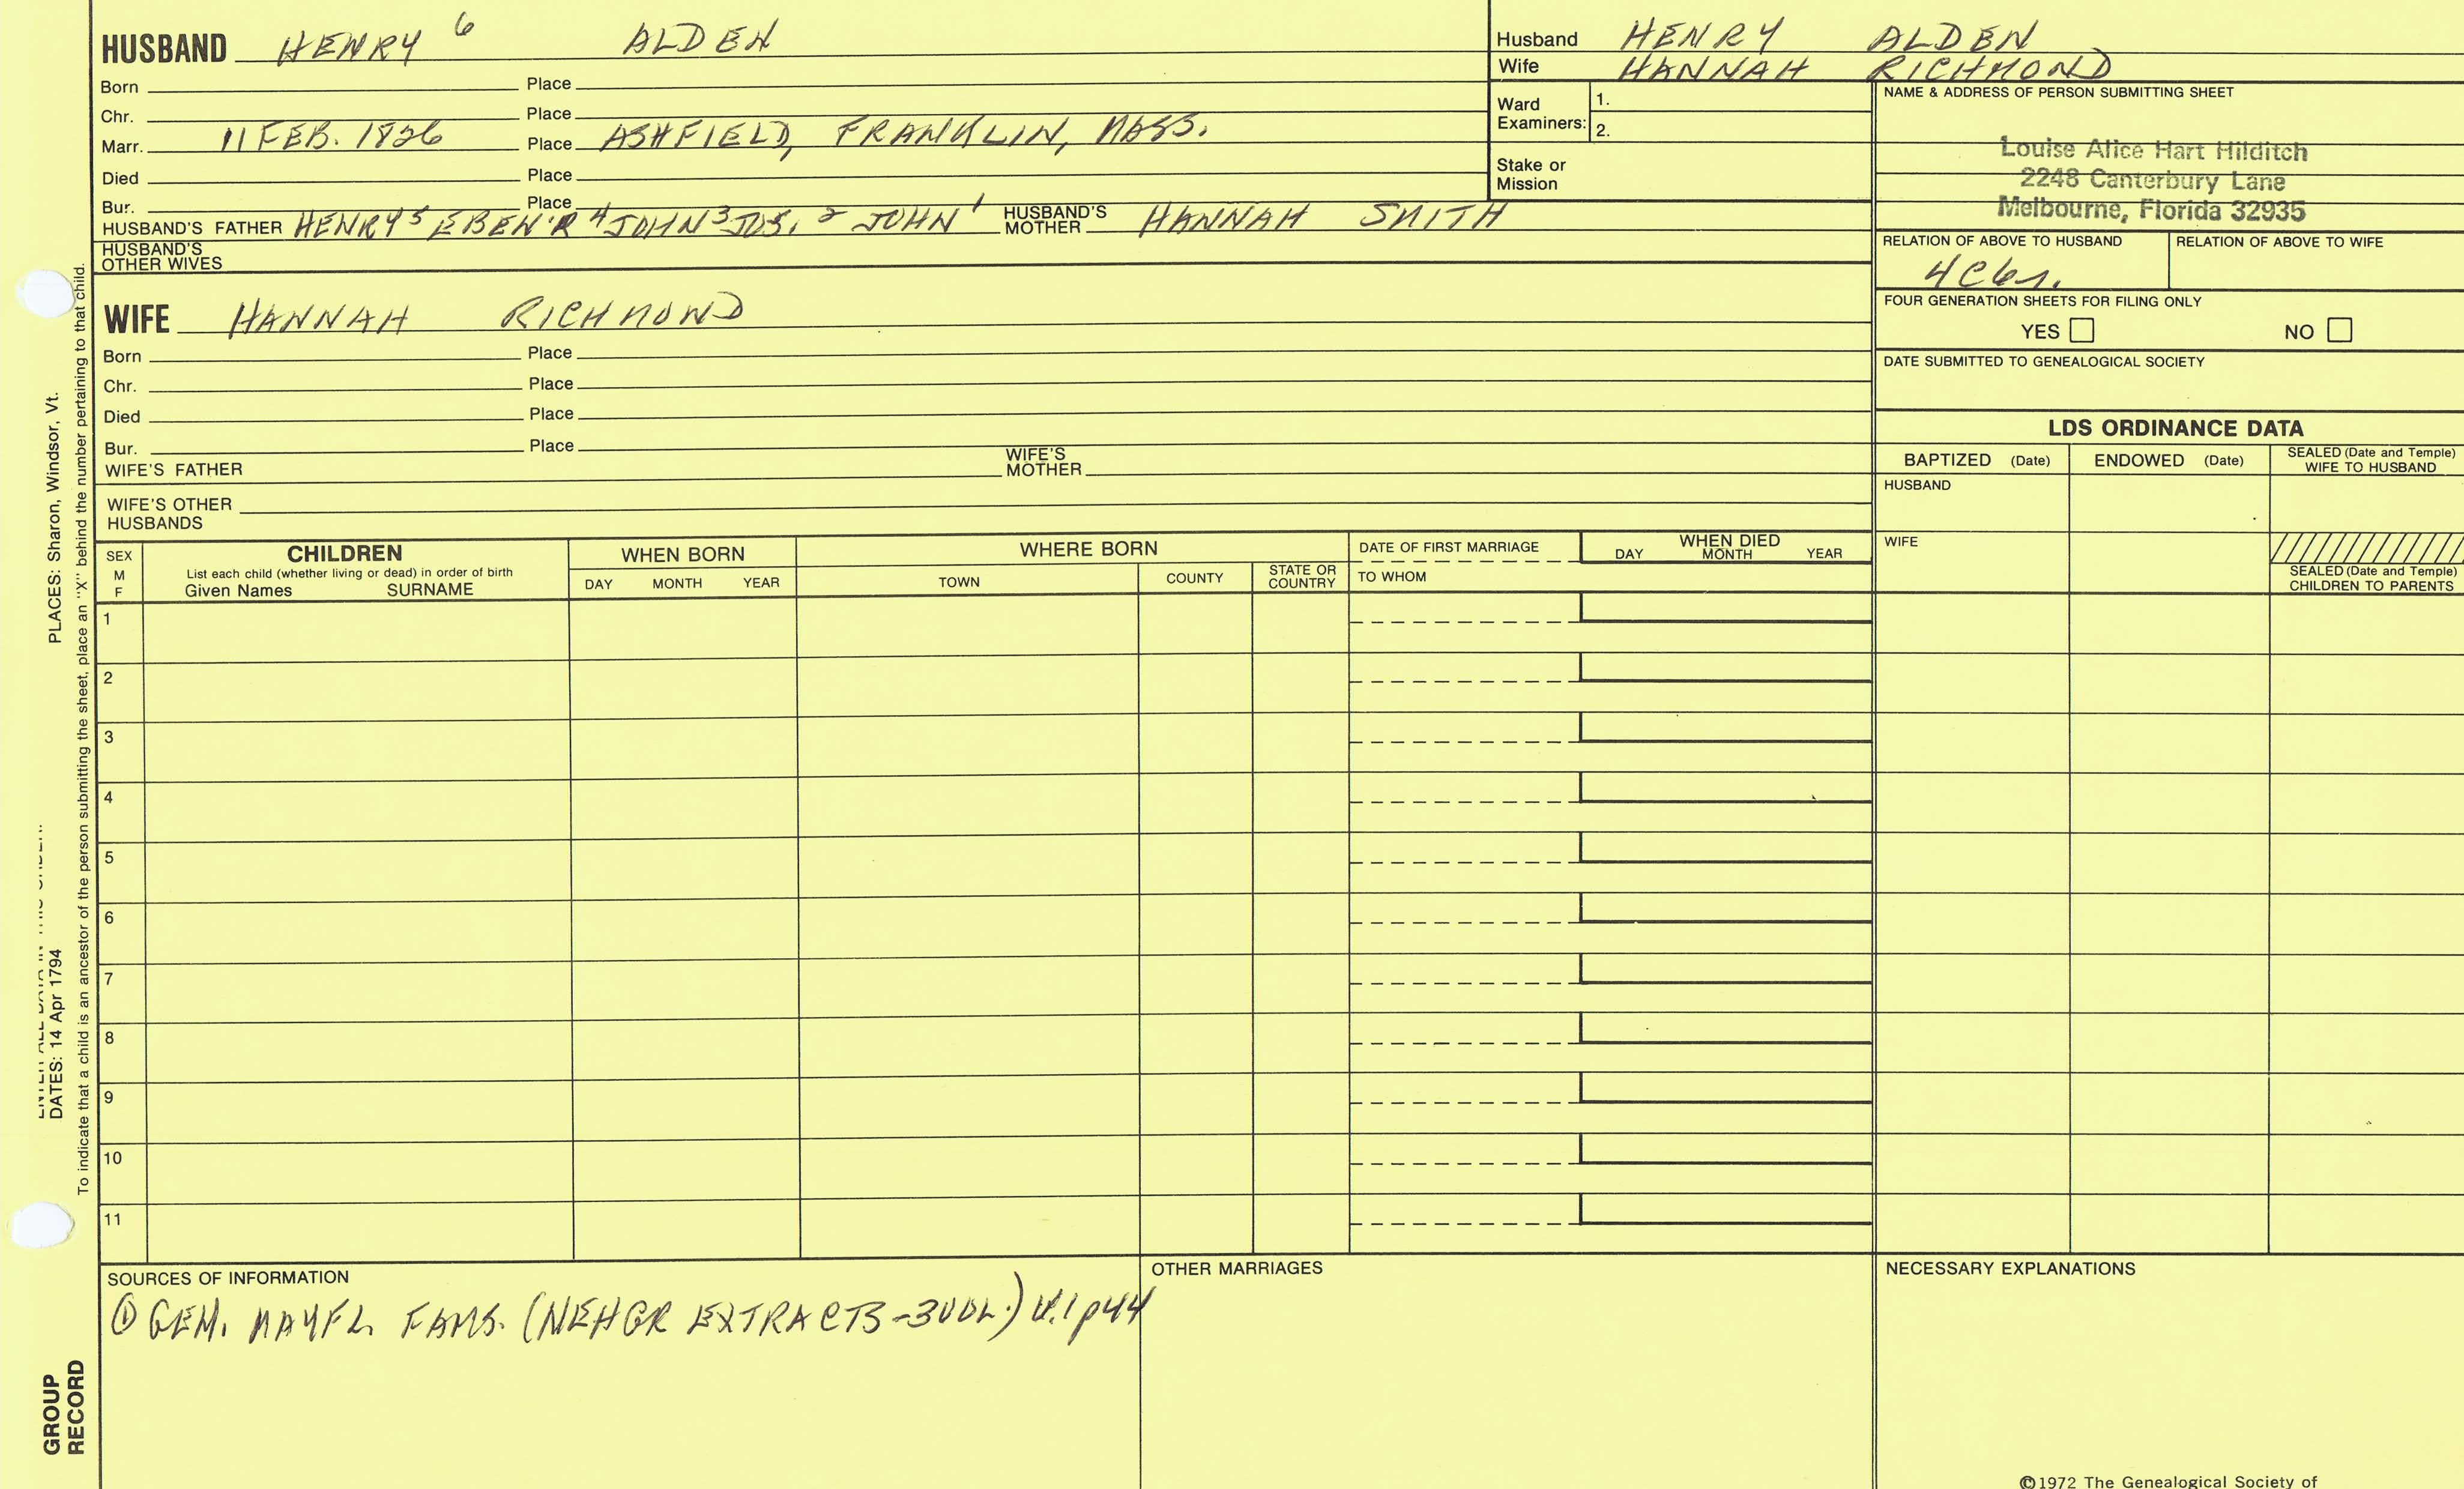 HUSBAND HENRY 6 ALDEN
Born Place
Chr. Place
Marr. 11 FEB. 1826 Place ASHFIELD, FRANKLIN, MASS.
Died Place
Bur. Place
HUSBAND'S FATHER HENRY 5 EBEN'R 4 JOHN 3 JOS. 2 JOHN 1 HUSBAND'S MOTHER HANNAH SMITH
HUSBAND'S OTHER WIVES
WIFE HANNAH RICHMOND
Born Place
Chr. Place
Died Place
Bur. Place
WIFE'S FATHER WIFE'S MOTHER
WIFE'S OTHER
HUSBANDS
Husband HENRY ALDEN
Wife HANNAH RICHMOND
Ward Examiners: 1.
2.
Stake or
Mission
NAME & ADDRESS OF PERSON SUBMITTING SHEET
Louise Alice Hart Hilditch
2248 Canterbury Lane
Melbourne, Florida 32935
RELATION OF ABOVE TO HUSBAND RELATION OF ABOVE TO WIFE
FOUR GENERATION SHEETS FOR FILING ONLY
YES NO
DATE SUBMITTED TO GENEALOGICAL SOCIETY
LDS ORDINANCE DATA
BAPTIZED (Date) ENDOWED (Date) SEALED (Date and Temple) WIFE TO HUSBAND
HUSBAND
WIFE
SEALED (Date and Temple)
CHILDREN TO PARENTS
SEX
M
F
CHILDREN
List each child (whether living or dead) in order of birth
Given Names SURNAME
WHEN BORN
DAY MONTH YEAR
WHERE BORN
TOWN COUNTY STATE OR COUNTRY
DATE OF FIRST MARRIAGE
TO WHOM
WHEN DIED
DAY MONTH YEAR
1
2
3
4
5
6
7
8
9
10
11
SOURCES OF INFORMATION
① GEN. MAYFL. FAMS. (NEHGR EXTRACTS-3VOL.) V.1 p44
OTHER MARRIAGES
NECESSARY EXPLANATIONS
©1972 The Genealogical Society of
PLACES: Sharon, Windsor, Vt.
DATES: 14 Apr 1794
To indicate that a child is an ancestor of the person submitting the sheet, place an "X" behind the number pertaining to that child.
GROUP
RECORD